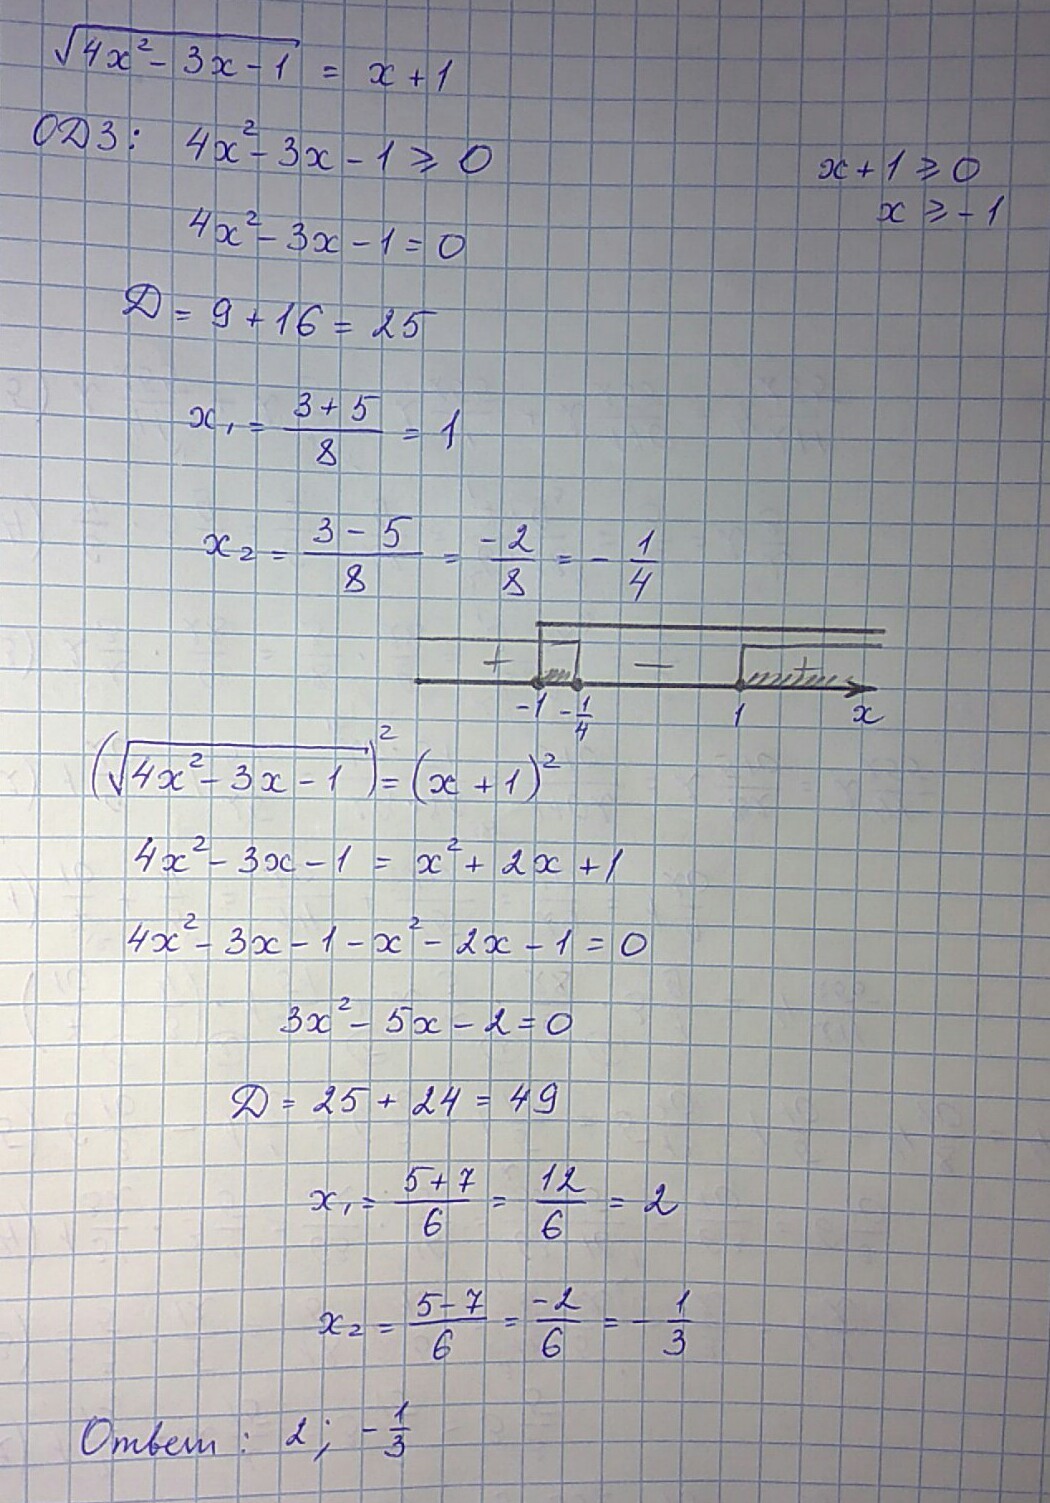 √(4x² - 3x - 1) = x + 1
ОДЗ: 4x² - 3x - 1 ≥ 0
x + 1 ≥ 0
x ≥ -1
4x² - 3x - 1 = 0
Д = 9 + 16 = 25
x₁ = (3 + 5)/8 = 1
x₂ = (3 - 5)/8 = -2/8 = -1/4
+ - +
-1 -1/4 1 x
(√(4x² - 3x - 1))² = (x + 1)²
4x² - 3x - 1 = x² + 2x + 1
4x² - 3x - 1 - x² - 2x - 1 = 0
3x² - 5x - 2 = 0
Д = 25 + 24 = 49
x₁ = (5 + 7)/6 = 12/6 = 2
x₂ = (5 - 7)/6 = -2/6 = -1/3
Ответ: 2; -1/3